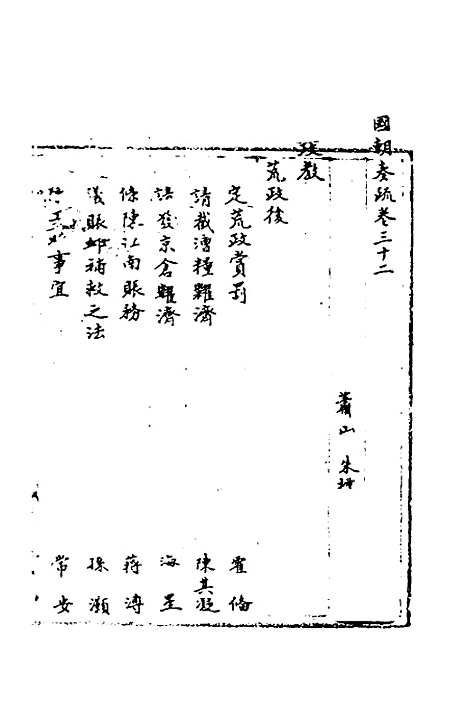 國朝奏疏卷三十二
蕭山 朱
教
荒政後
定荒政賞罰 霍備
請截漕糧糶濟 陳其凝
請發京倉糶濟 海望
條陳江南賑務 蔣溥
議賑卹補救之法 孫灝
事宜 常安